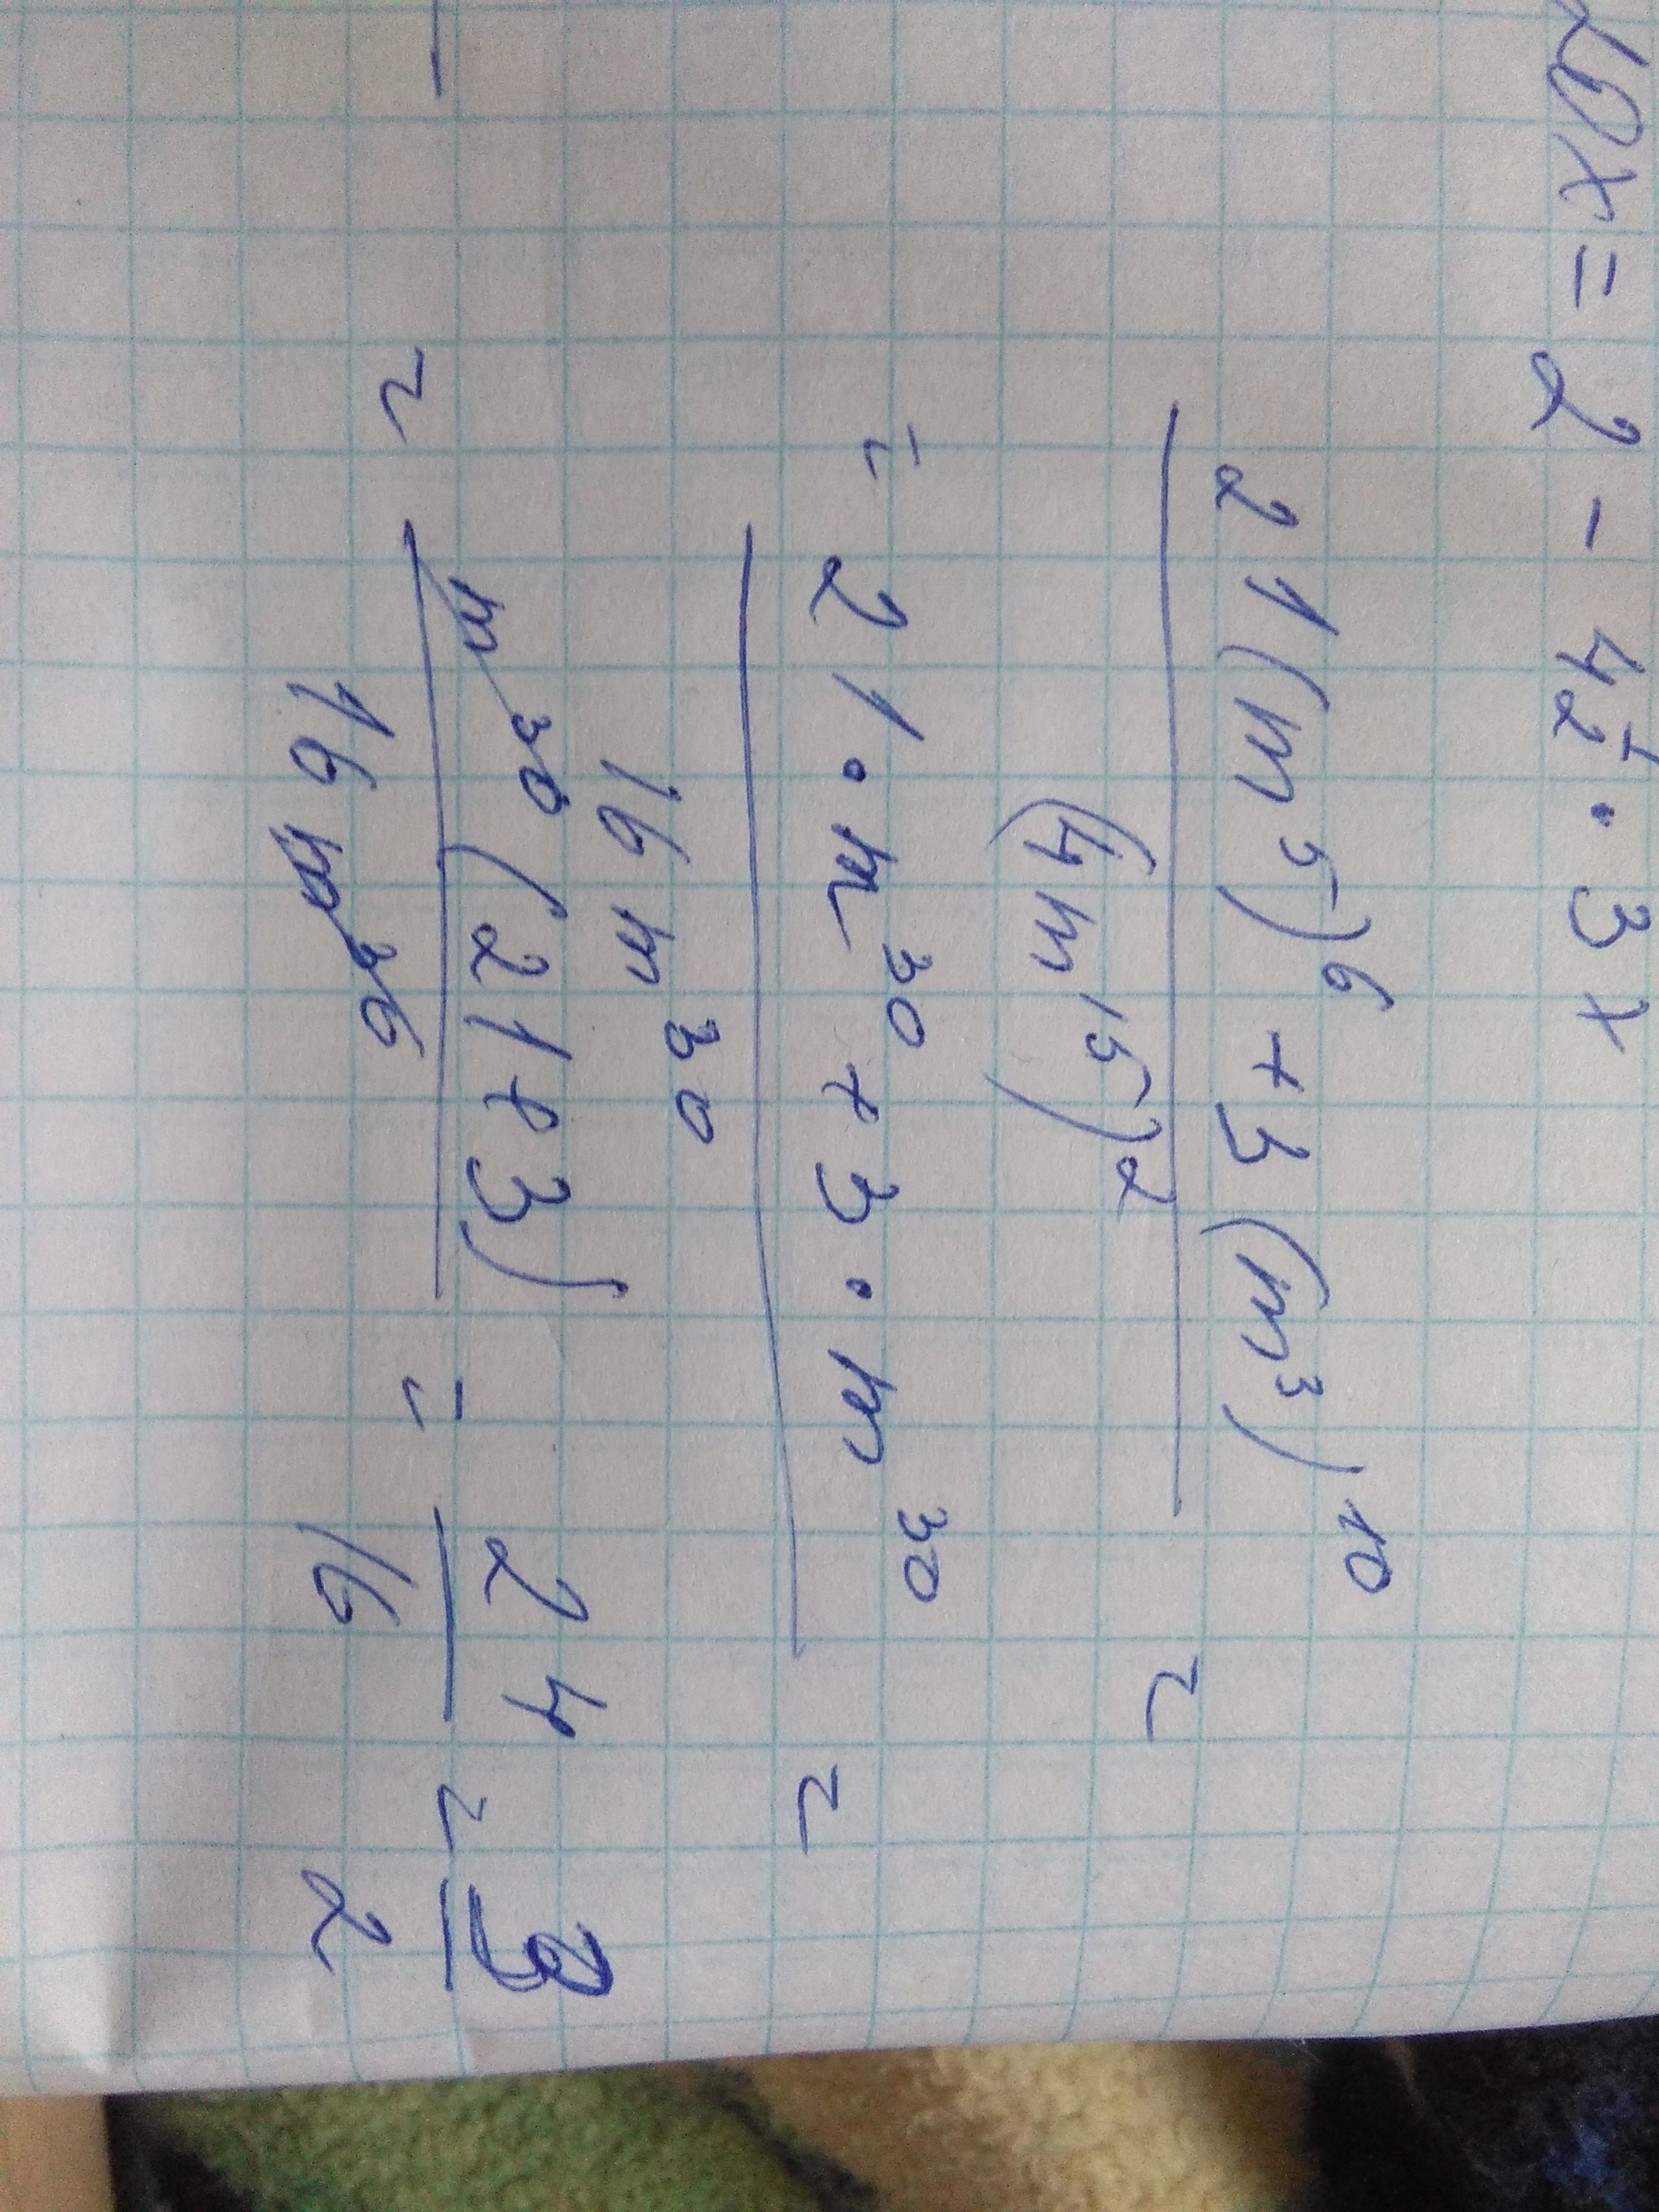 20x = 2 - 4 1/2 · 3x
21(m^5)^6 + 3(m^3)^10 / (4m^15)^2 =
= 21 · m^30 + 3 · m^30 / 16 m^30 =
= m^30 (21 + 3) / 16 m^30 = 24 / 16 = 3 / 2